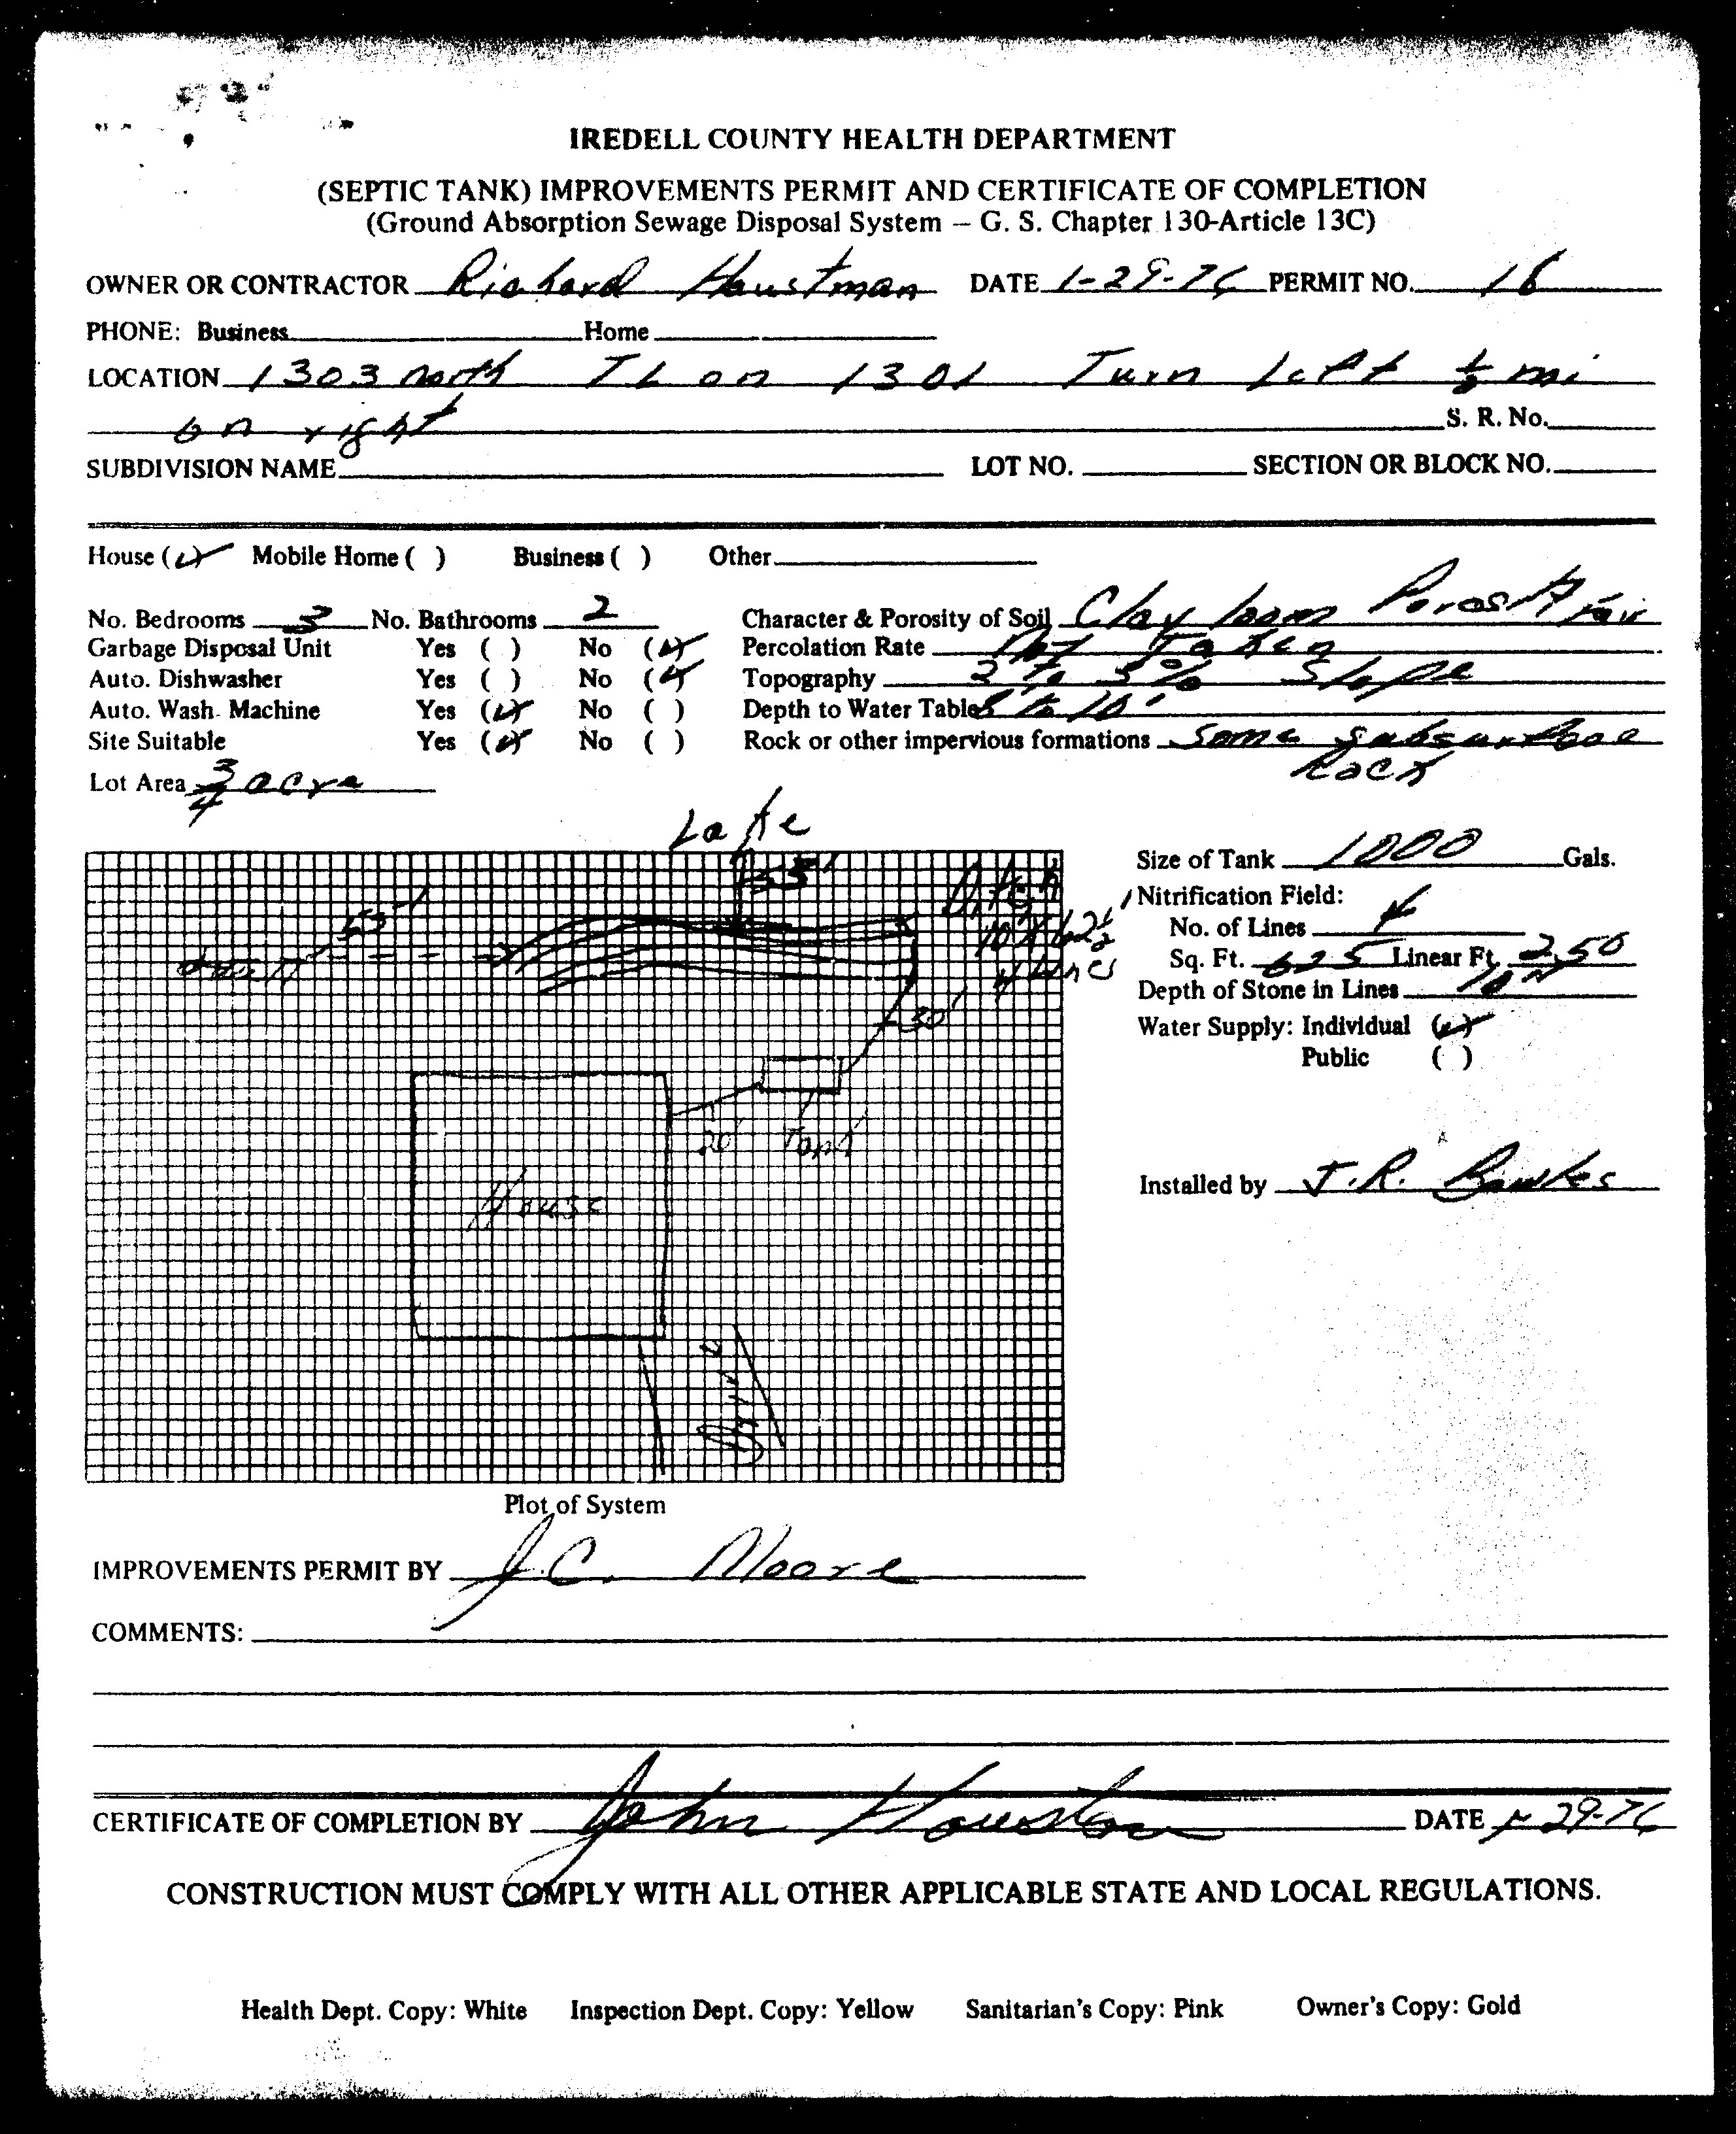 IREDELL COUNTY HEALTH DEPARTMENT
(SEPTIC TANK) IMPROVEMENTS PERMIT AND CERTIFICATE OF COMPLETION
(Ground Absorption Sewage Disposal System – G. S. Chapter 130-Article 13C)
OWNER OR CONTRACTOR Richard Haustman DATE 1-29-76 PERMIT NO. 18
PHONE: Business Home
LOCATION 1303 north TL on 1301 Turn left ½ mi
on right S. R. No.
SUBDIVISION NAME LOT NO. SECTION OR BLOCK NO.
House (✓) Mobile Home ( ) Business ( ) Other
No. Bedrooms 3 No. Bathrooms 2 Character & Porosity of Soil Clay loam Porosity fair
Garbage Disposal Unit Yes ( ) No (✓) Percolation Rate Not Taken
Auto. Dishwasher Yes ( ) No (✓) Topography 2 to 5% Slope
Auto. Wash. Machine Yes (✓) No ( ) Depth to Water Table 8 to 10'
Site Suitable Yes (✓) No ( ) Rock or other impervious formations Some subsurface
Rock
Lot Area 3/4 acre
Lake
55'
Ditch
10' X 62½'
4 Lines
53'
30'
20' Tank
House
Drive
Size of Tank 1000 Gals.
Nitrification Field:
No. of Lines 4
Sq. Ft. 625 Linear Ft. 250
Depth of Stone in Lines 10"
Water Supply: Individual (✓)
Public ( )
Installed by J.R. Bowles
Plot of System
IMPROVEMENTS PERMIT BY J.C. Moore
COMMENTS:
CERTIFICATE OF COMPLETION BY John Houston DATE 1-29-76
CONSTRUCTION MUST COMPLY WITH ALL OTHER APPLICABLE STATE AND LOCAL REGULATIONS.
Health Dept. Copy: White Inspection Dept. Copy: Yellow Sanitarian's Copy: Pink Owner's Copy: Gold